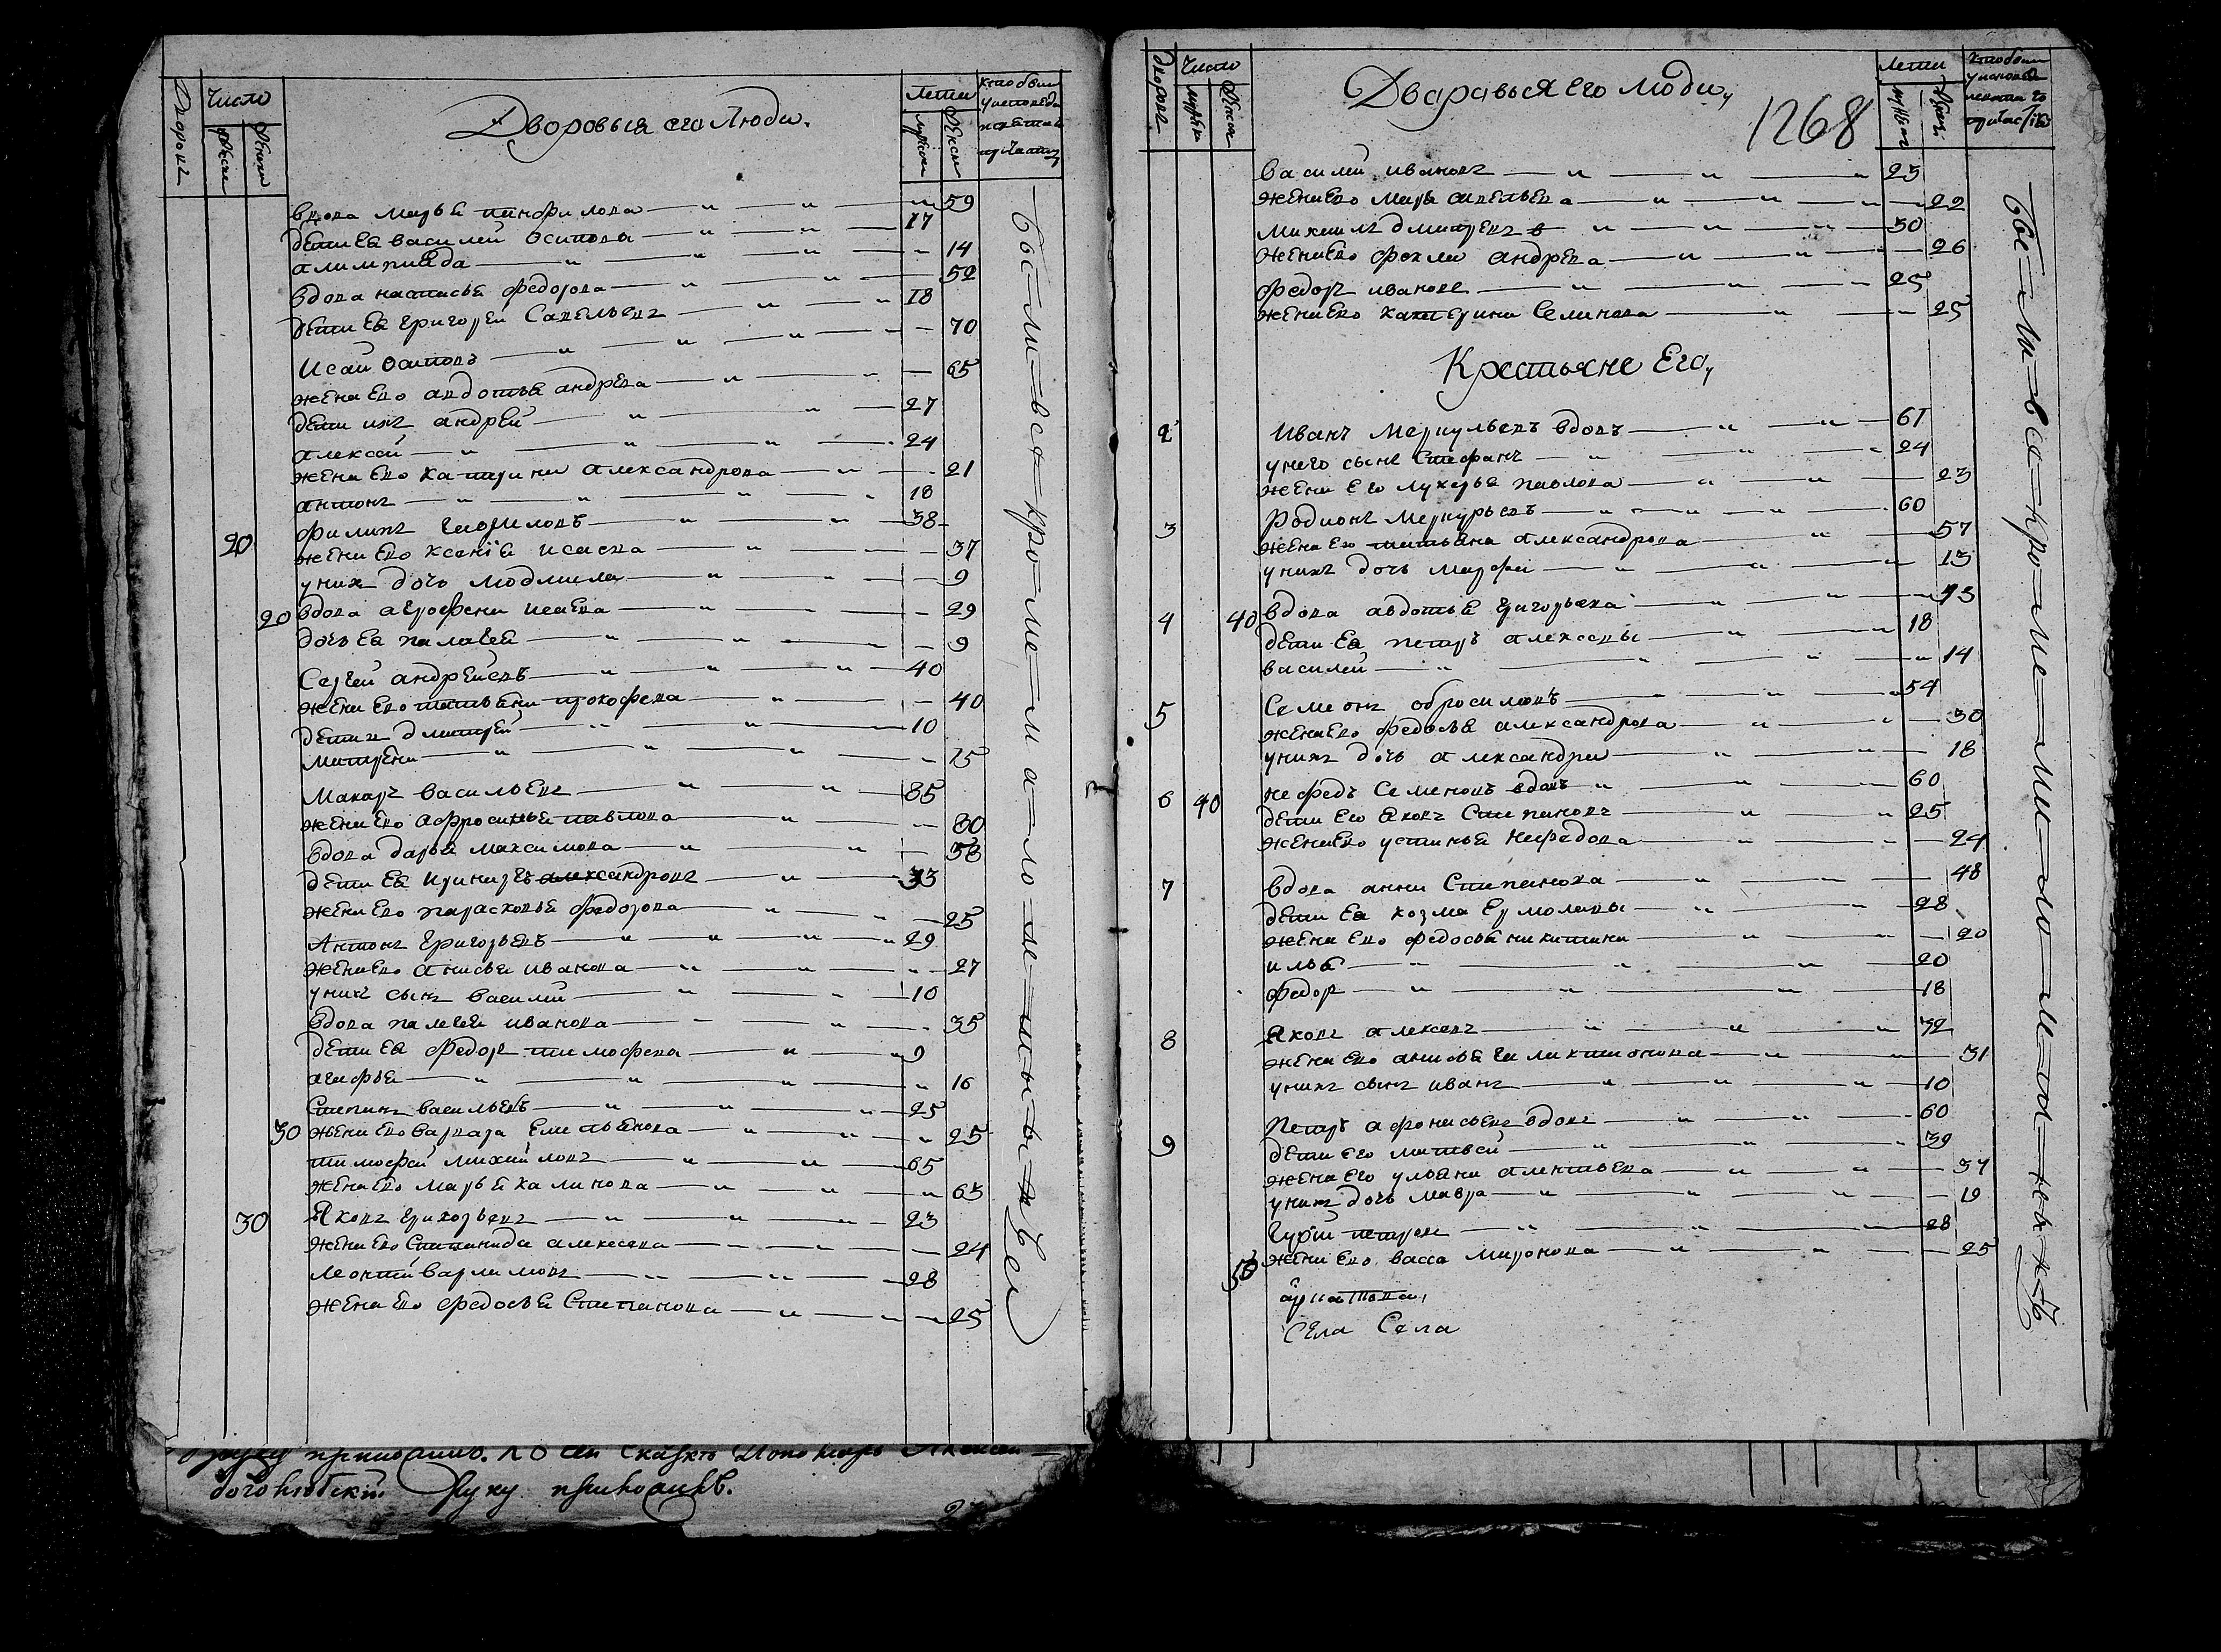 Дворовъ
Число
Мужска
Женска
Дворовыя его Люди.
Лета
мужска
Женска
кто были
у исповеди
и святаго
причастия
вдова марья панфилова 59
дети ея василей осипова 17
алимпиада 14
вдова настасья федорова 52
дети ея григорей Савельевъ 18
70
Исаи Осиповъ
жена ево авдотья андрева 65
дети ихъ андрей 27
алексей 24
жена ево катерина александрова 21
антонъ 18
20 филипъ гавриловъ 38
жена ево ксения исаева 37
у них дочь людмила 9
20 вдова агрофена исаева 29
дочь ея палагея 9
Сергей андрейевъ 40
жена ево татьяна прокофева 40
дети их дмитрей 10
матрена 15
Макаръ васильевъ 85
жена ево афросинья павлова 80
вдова дарья максимова 58
дети ея александровъ 33
жена ево парасковья федорова 25
Антонъ григорьевъ 29
жена ево анисья иванова 27
у нихъ сынъ василей 10
вдова палагея иванова 35
дети ея федор тимофева 9
агафья 16
Степанъ васильевъ 25
30 жена ево варвара емельянова 25
тимофей михайловъ 65
жена ево марья калинова 65
30 Яковъ григорьевъ 23
жена ево Степанида алексева 24
леонтий варламовъ 28
жена ево федосья Степанова 25
руку приложилъ.
боголюбский руку приложилъ.
Дворовъ
Число
мужска
Женска
Дваравыя его люди,
1268
Лета
мужска
Женска
кто были
у исповеди
и святаго
причастия
василей ивановъ 25
жена ево марья савельева 22
михаилъ дмитревъ 30
жена ево фекла андрева 26
федоръ ивановъ 25
жена ево катерина Селинова 25
Крестьяне Его,
2 Иванъ Меркульевъ вдовъ 61
у него сынъ Стефанъ 24
жена его лукерья павлова 23
3 Родионъ Меркурьевъ 60
жена ево татьяна александрова 57
у нихъ дочь марфа 13
4 40 вдова авдотья григорьева 43
дети ея петръ алексевы 18
василей 14
5 Семенъ обросимовъ 54
жена ево федосья александрова 30
у нихъ дочь александра 18
6 40 нефедъ Семеновъ вдовъ 60
дети ево Яковъ Степановъ 25
жена ево устинья Нефедова 24
7 вдова анна Степанова 48
дети ея козма Ермолаевы 28
жена ево федосья никитина 20
илья 20
федор 18
8 Яковъ алексевъ 32
жена ево анисья галиктионова 31
у нихъ сынъ иванъ 10
9 Петръ афонасьевъ вдовъ 60
дети его матвей 39
жена его ульяна алентьева 37
у нихъ дочь мавра 19
Гурий петровъ 28
50 жена ево васса Миронова 25
Села Села